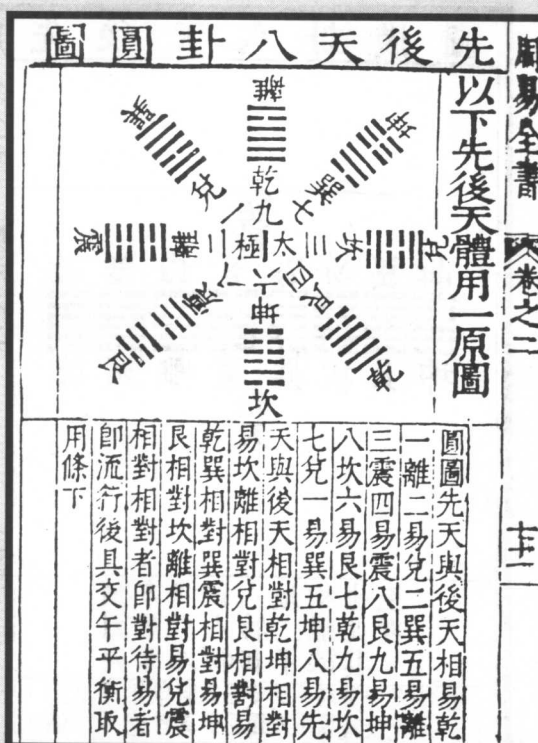 周易全書 卷之二
先後天八卦圓圖
以下先後天體用一原圖
離
坤
兌
乾
坎
艮
震
巽
乾九
巽七
坎三
艮四
六坤
震八
離二
兌一
太極
圓圖先天與後天相易乾
一離二易兌二巽五易離
三震四易震八艮九易坤
八坎六易艮七乾九易坎
七兌一易巽五坤八易先
天與後天相對乾坤相對
易坎離相對兌艮相對易
乾巽相對巽震相對易坤
艮相對坎離相對易兌震
相對相對者即對待易者
即流行後具交午平衡取
用條下